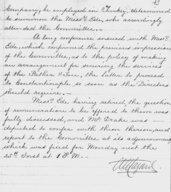 Company, be employed in Turkey, determined
to summon the Mess.rs Ede, who accordingly
attended the Committee.
A long conference ensued with Mess.rs
Ede, which confirmed the previous impression
of the Committee, as to the policy of making
an arrangement for securing the services
of the Father & Son, the latter to proceed
to Constantinople as soon as the Directors
should require.
Mess.rs Ede having asked the question
of remuneration to be offered to them was
fully discussed, and Mr Drake was
deputed to confer with them thereon, and
report to the Committee at its
which was fixed for Monday next the
22nd Inst at 1 P.M.